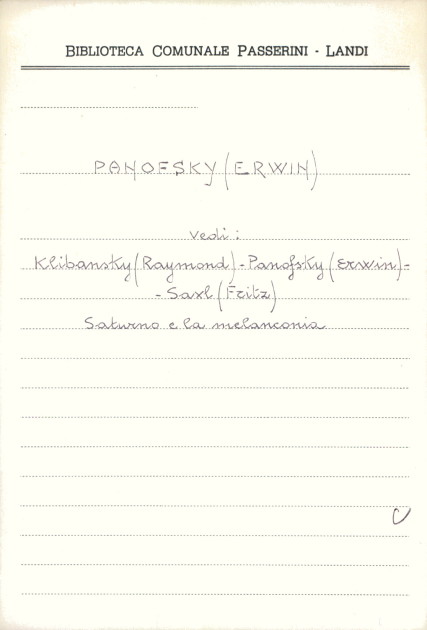 BIBLIOTECA COMUNALE PASSERINI - LANDI
PANOFSKY (ERWIN)
vedi:
Klibansky (Raymond) - Panofsky (Erwin) -
- Saxl (Fritz)
Saturno e la melanconia